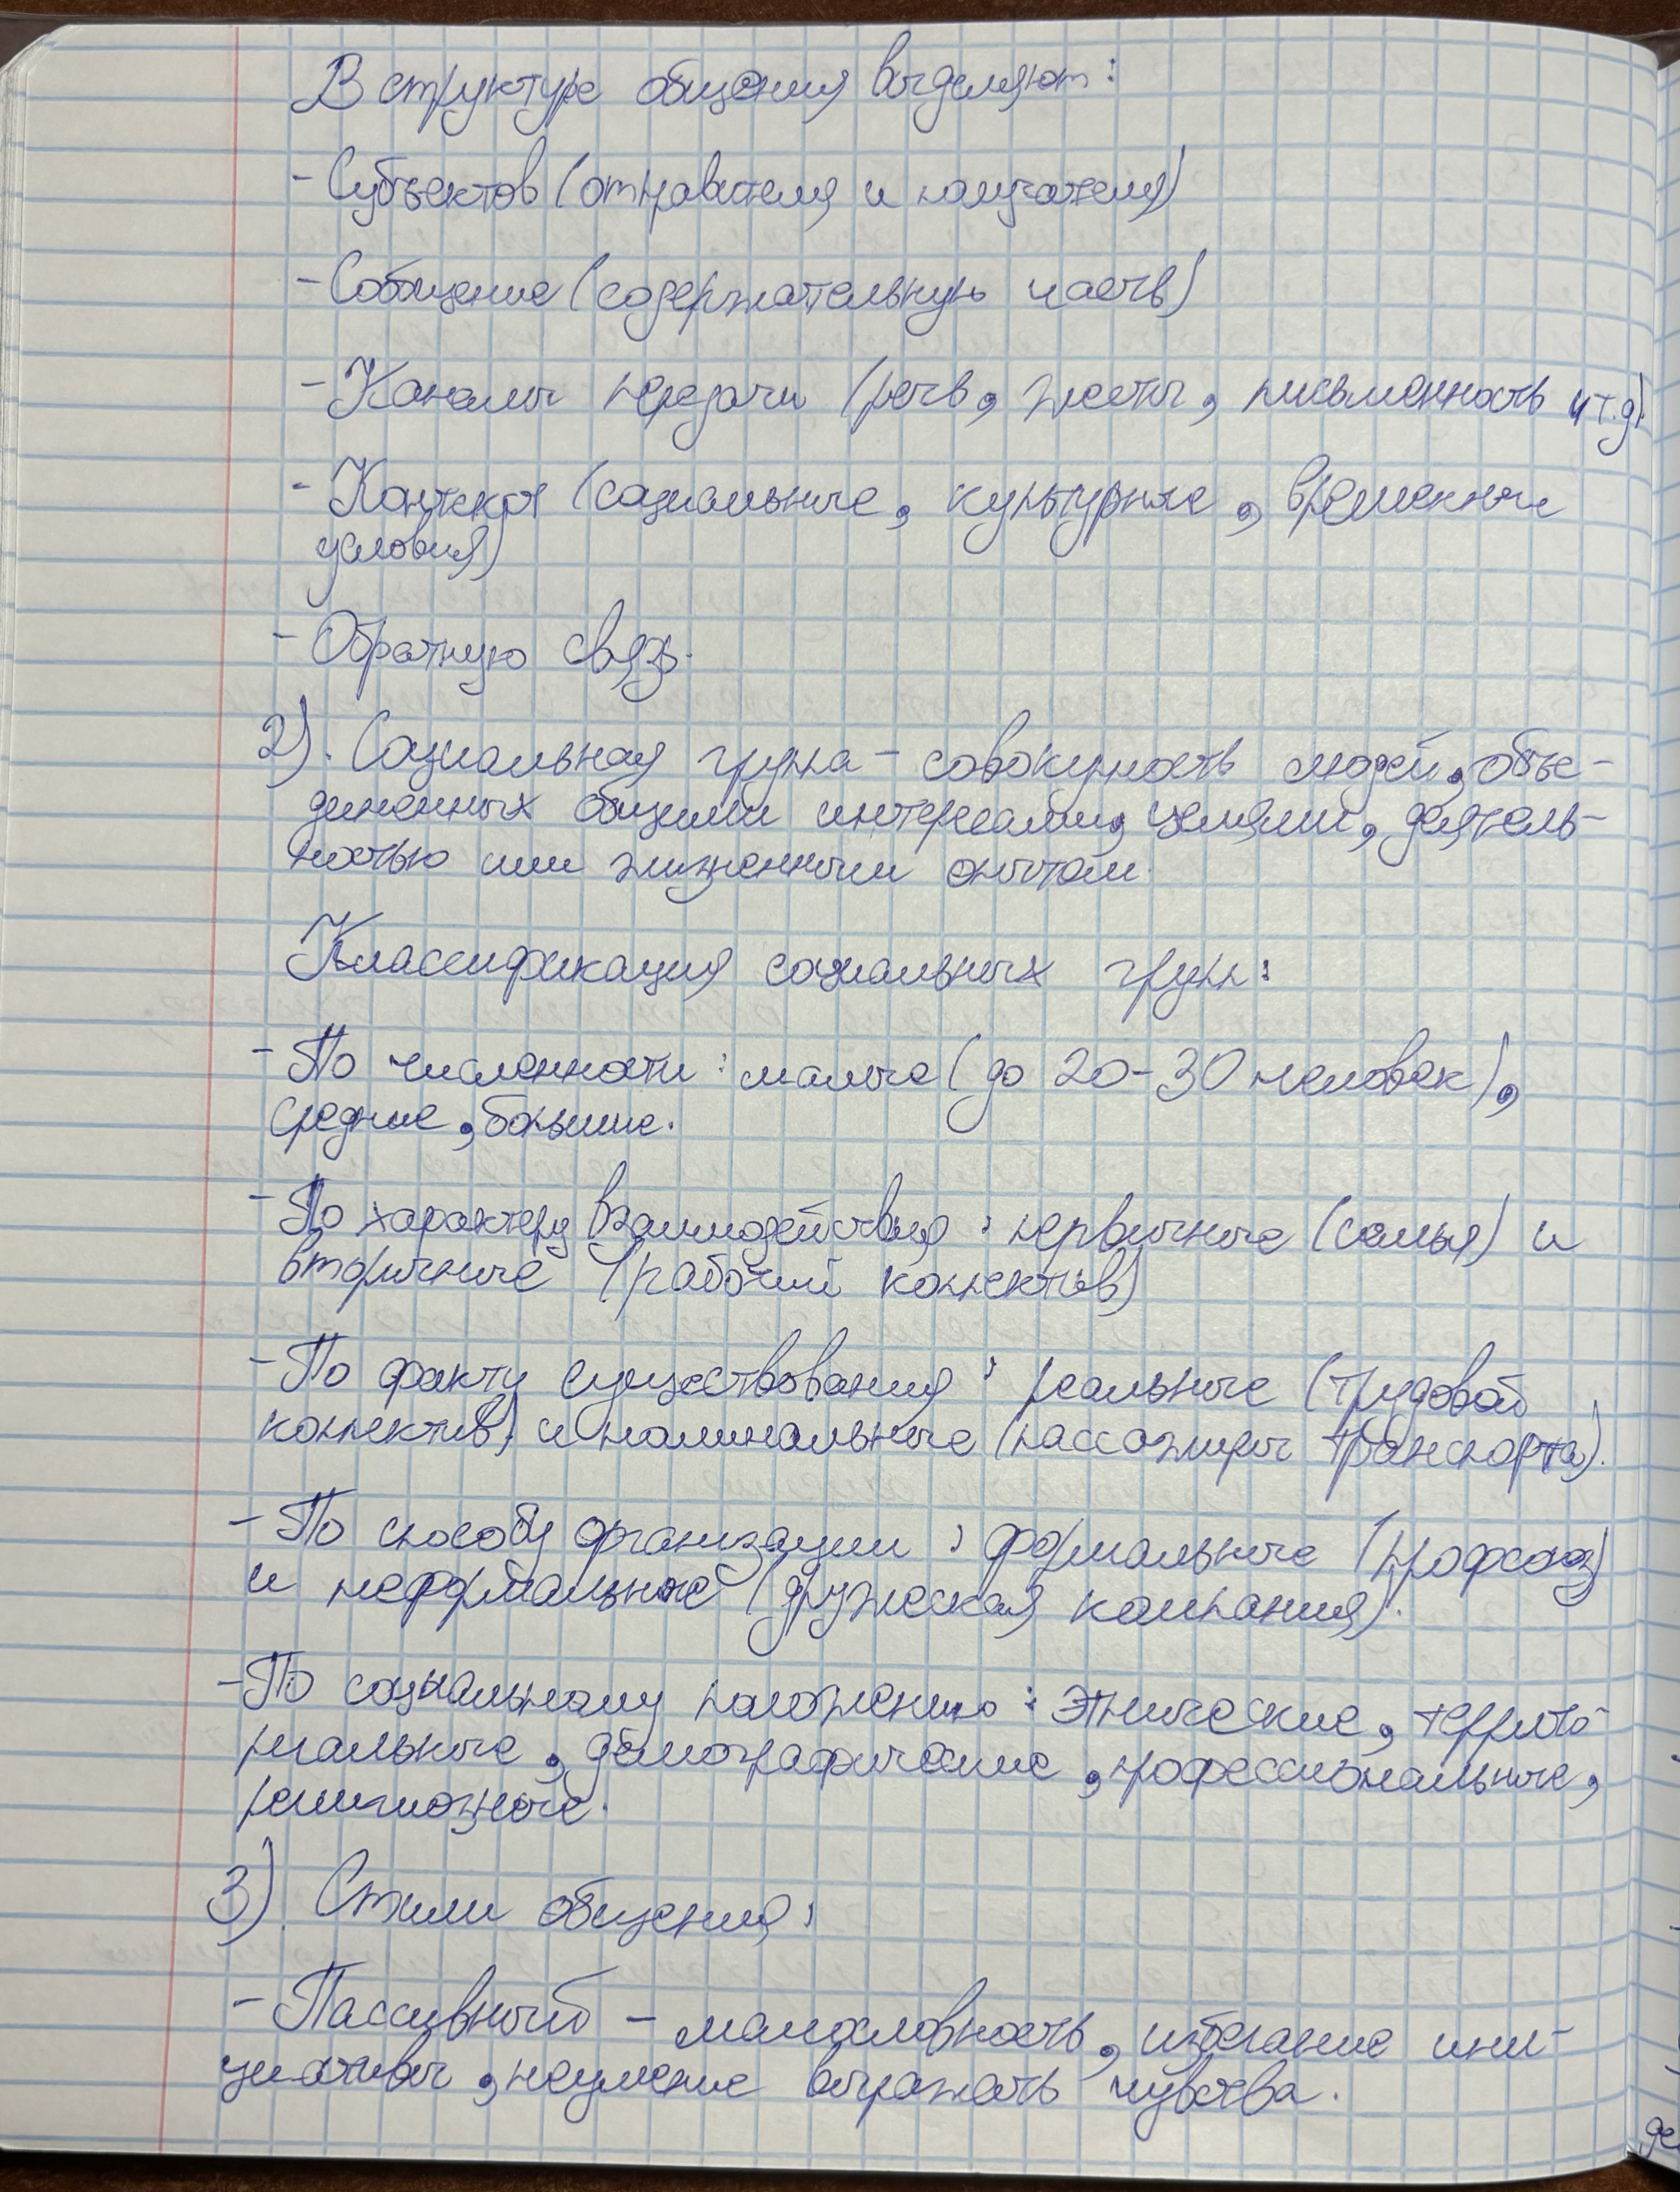 В структуре общения выделяют:
- Субъектов (отправителя и получателя)
- Сообщение (содержательную часть)
- Каналы передачи (речь, жесты, письменность и т.д).
- Контекст (социальные, культурные, временные
условия)
- Обратную связь.
2). Социальная группа - совокупность людей, объе-
диненных общими интересами, целями, деятель-
ностью или жизненным опытом.
Классификация социальных групп:
- По численности: малые (до 20-30 человек),
средние, большие.
- По характеру взаимодействия: первичные (семья) и
вторичные (рабочий коллектив)
- По факту существования: реальные (трудовой
коллектив) и номинальные (пассажиры транспорта).
- По способу организации: формальные (профсоюз)
и неформальные (дружеская компания).
- По социальному положению: этнические, террито-
риальные, демографические, профессиональные,
религиозные.
3). Стили общения:
- Пассивный - малословность, избегание ини-
циативы, неумение выражать чувства.
де